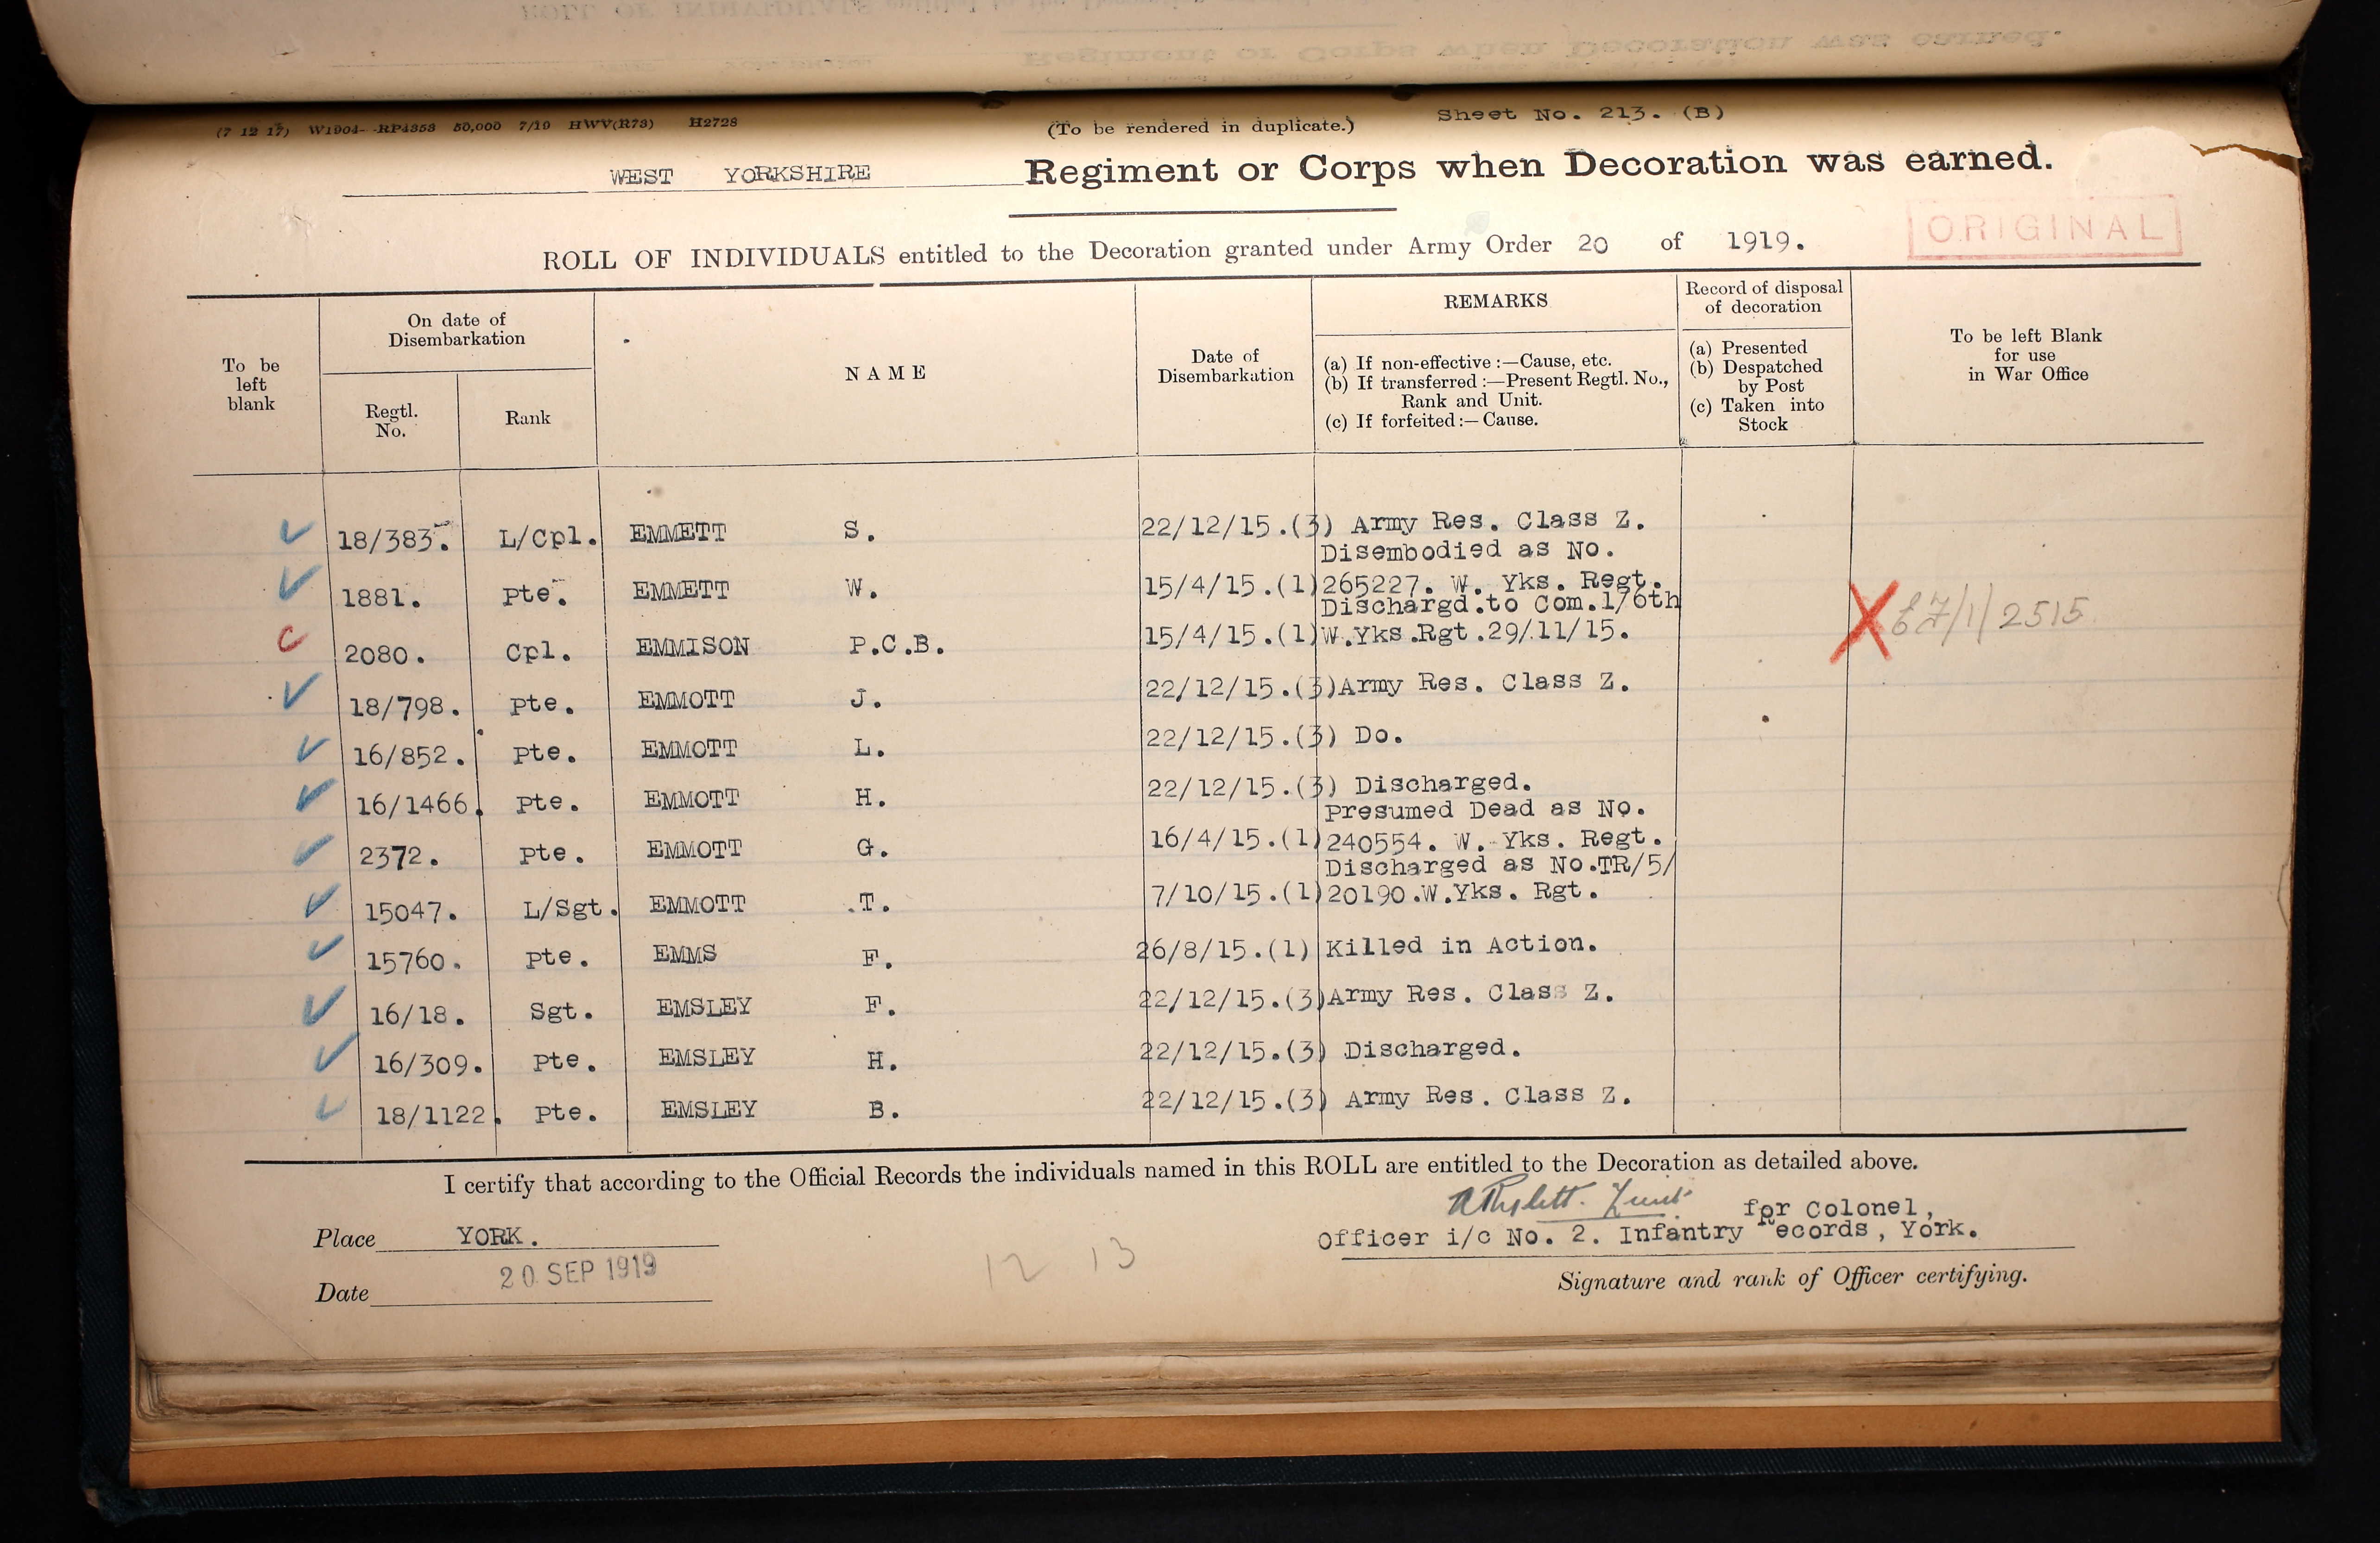 (7 12 17) W1904--RP4353 50,000 7/19 HWV(R73) H2728
(To be rendered in duplicate.)
Sheet No. 213. (B)
WEST YORKSHIRE Regiment or Corps when Decoration was earned.
ORIGINAL
ROLL OF INDIVIDUALS entitled to the Decoration granted under Army Order 20 of 1919.
To be left blank
On date of Disembarkation
Regtl. No.
Rank
NAME
Date of Disembarkation
REMARKS
(a) If non-effective :—Cause, etc.
(b) If transferred :—Present Regtl. No., Rank and Unit.
(c) If forfeited :— Cause.
Record of disposal of decoration
(a) Presented
(b) Despatched by Post
(c) Taken into Stock
To be left Blank for use in War Office
18/383. L/Cpl. EMMETT S. 22/12/15.(3) Army Res. Class Z.
Disembodied as No.
1881. Pte. EMMETT W. 15/4/15.(1) 265227. W. Yks. Regt.
Dischargd.to Com.1/6th
C 2080. Cpl. EMMISON P.C.B. 15/4/15.(1) W.Yks.Rgt.29/11/15. X /1/2515
18/798. Pte. EMMOTT J. 22/12/15.(3)Army Res. Class Z.
16/852. Pte. EMMOTT L. 22/12/15.(3) Do.
16/1466. Pte. EMMOTT H. 22/12/15.(3) Discharged.
Presumed Dead as No.
2372. Pte. EMMOTT G. 16/4/15.(1) 240554. W. Yks. Regt.
Discharged as No.TR/5/
15047. L/Sgt. EMMOTT T. 7/10/15.(1) 20190.W.Yks. Rgt.
15760. Pte. EMMS F. 26/8/15.(1) Killed in Action.
16/18. Sgt. EMSLEY F. 22/12/15.(3)Army Res. Class Z.
16/309. Pte. EMSLEY H. 22/12/15.(3) Discharged.
18/1122. Pte. EMSLEY B. 22/12/15.(3) Army Res. Class Z.
I certify that according to the Official Records the individuals named in this ROLL are entitled to the Decoration as detailed above.
for Colonel,
Place YORK.
Officer i/c No. 2. Infantry Records, York.
12 13
Date 20 SEP 1919
Signature and rank of Officer certifying.